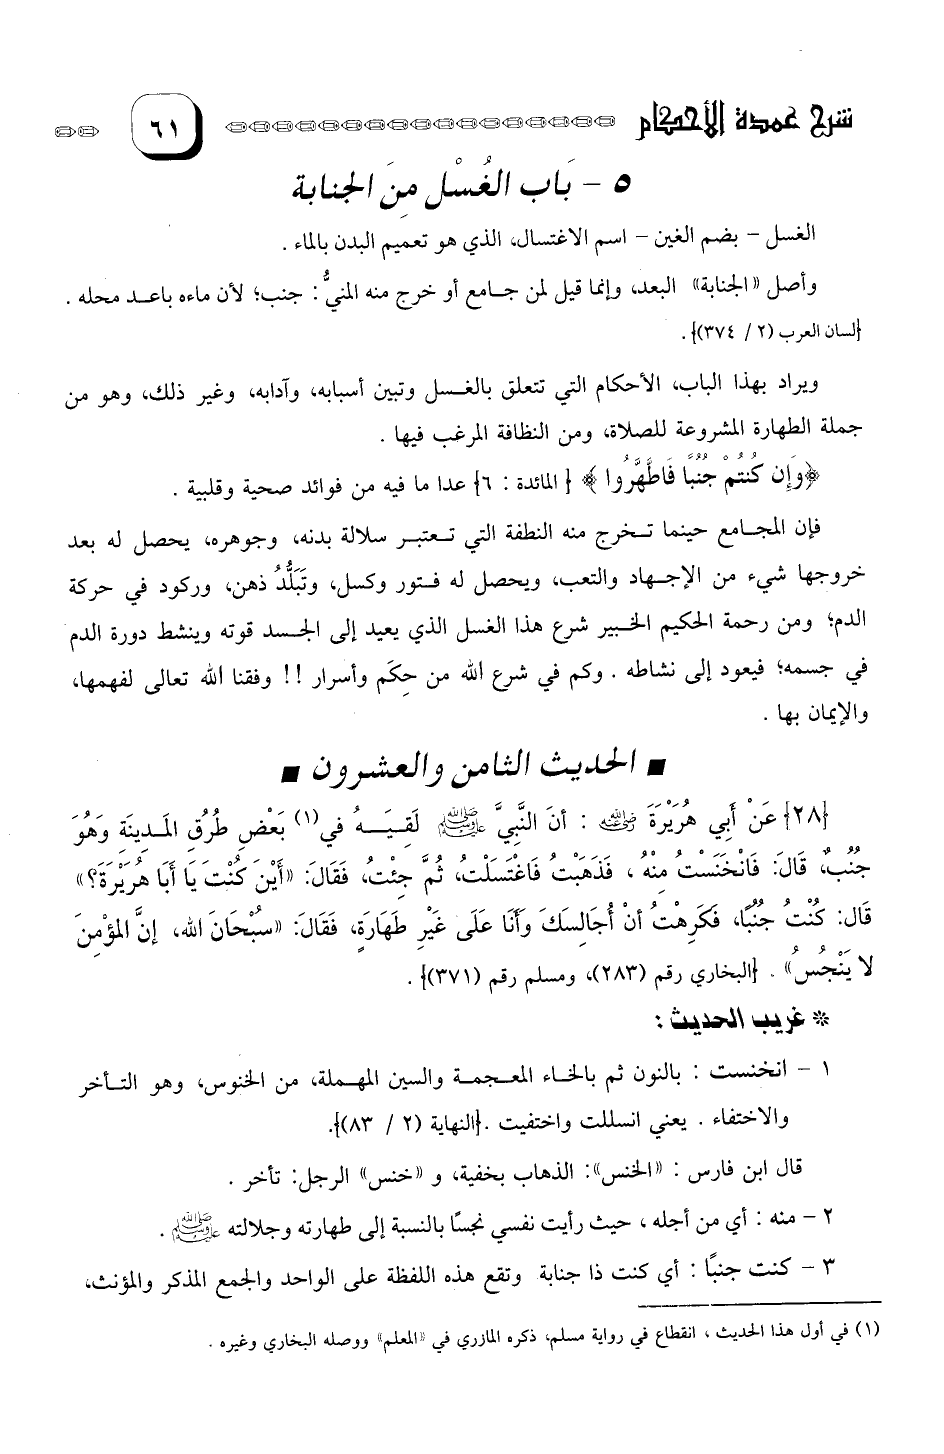 شرح عمدة الأحكام ٦١
٥ - بَاب الغُسْل مِنَ الجنابة
الغسل - بضم الغين - اسم الاغتسال، الذي هو تعميم البدن بالماء .
وأصل «الجنابة» البعد، وإنما قيل لمن جامع أو خرج منه المنيُّ : جنب؛ لأن ماءه باعد محله .
{لسان العرب (٢ / ٣٧٤)} .
ويراد بهذا الباب، الأحكام التي تتعلق بالغسل وتبين أسبابه، وآدابه، وغير ذلك، وهو من
جملة الطهارة المشروعة للصلاة، ومن النظافة المرغب فيها .
﴿وَإِن كُنتُمْ جُنُبًا فَاطَّهَّرُوا﴾ {المائدة : ٦} عدا ما فيه من فوائد صحية وقلبية .
فإن المجامع حينما تخرج منه النطفة التي تعتبر سلالة بدنه، وجوهره، يحصل له بعد
خروجها شيء من الإجهاد والتعب، ويحصل له فتور وكسل، وتَبَلُّدُ ذهن، وركود في حركة
الدم؛ ومن رحمة الحكيم الخبير شرع هذا الغسل الذي يعيد إلى الجسد قوته وينشط دورة الدم
في جسمه؛ فيعود إلى نشاطه . وكم في شرع الله من حِكَم وأسرار !! وفقنا الله تعالى لفهمها،
والإيمان بها .
■ الحديث الثامن والعشرون ■
{٢٨} عَنْ أَبِي هُرَيْرَةَ رضي الله عنه : أنَ النَّبِيَّ ﷺ لَقِيَـهُ في(١) بَعْضِ طُرُقِ المَدِينَةِ وَهُوَ
جُنُبٌ، قَالَ: فَانْخَنَسْتُ مِنْهُ ، فَذَهَبْتُ فَاغْتَسَلْتُ، ثُمَّ جِئْتُ، فَقَالَ: «أَيْنَ كُنْتَ يَا أَبَا هُرَيْرَةَ؟»
قَال: كُنْتُ جُنُبًا، فَكَرِهْتُ أنْ أُجَالِسَكَ وَأَنَا عَلَى غَيْرِ طَهَارَةٍ، فَقَالَ: «سُبْحَانَ الله، إنَّ المُؤْمِنَ
لا يَنْجُسُ» . {البخاري رقم (٢٨٣)، ومسلم رقم (٣٧١)} .
* غريب الحديث :
١ - انخنست : بالنون ثم بالخاء المعجمة والسين المهملة، من الخنوس، وهو التأخر
والاختفاء . يعني انسللت واختفيت .{النهاية (٢ / ٨٣)}.
قال ابن فارس : «الخنس»: الذهاب بخفية، و «خنس» الرجل: تأخر .
٢ - منه : أي من أجله ، حيث رأيت نفسي نجسًا بالنسبة إلى طهارته وجلالته ﷺ .
٣ - كنت جنبًا : أي كنت ذا جنابة وتقع هذه اللفظة على الواحد والجمع المذكر والمؤنث،
(١) في أول هذا الحديث ، انقطاع في رواية مسلم، ذكره المازري في «المعلم» ووصله البخاري وغيره .